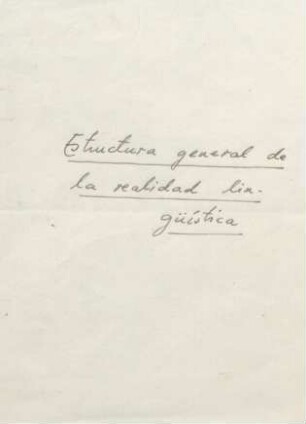 Estructura general de
la realidad lin-
güística